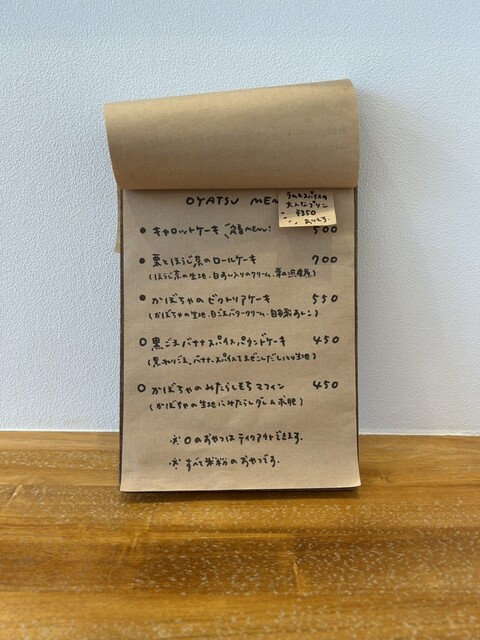 OYATSU MEN
ラムとスパイスの
大人なプリン
¥350
あります。
キャロットケーキ 500
栗とほうじ茶のロールケーキ 700
(ほうじ茶の生地、白あん入りのクリーム、栗の渋皮煮)
かぼちゃのビクトリアケーキ 550
(かぼちゃの生地、白ごまバタークリーム、自家製あんこ)
黒ごまバナナスパイスパウンドケーキ 450
(黒ねりごま、バナナ、スパイスをまぜこんだしっとり生地)
かぼちゃのみたらしもちマフィン 450
(かぼちゃの生地にみたらしダレ&求肥)
※○のおやつはテイクアウトできます。
※すべて米粉のおやつです。